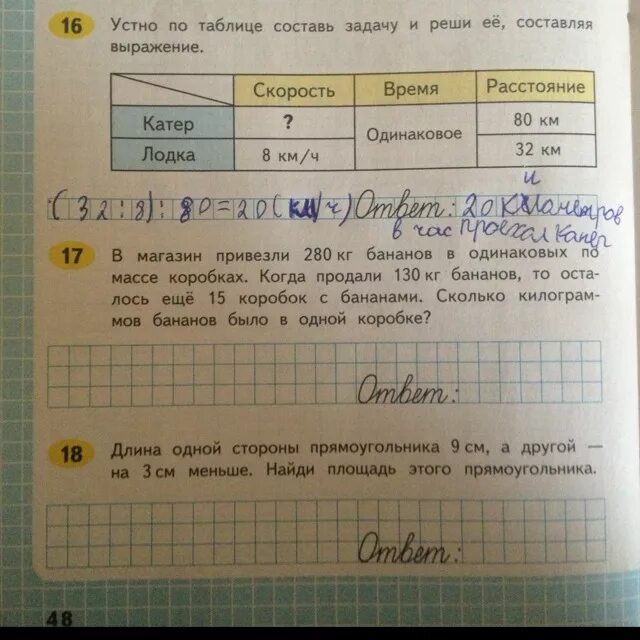 16 Устно по таблице составь задачу и реши её, составляя
выражение.
Скорость Время Расстояние
Катер ? Одинаковое 80 км
Лодка 8 км/ч 32 км
(32:8): 80=20(км/ч) Ответ: 20 километров
в час проехал катер
17 В магазин привезли 280 кг бананов в одинаковых по
массе коробках. Когда продали 130 кг бананов, то оста-
лось ещё 15 коробок с бананами. Сколько килограм-
мов бананов было в одной коробке?
Ответ:
18 Длина одной стороны прямоугольника 9 см, а другой —
на 3 см меньше. Найди площадь этого прямоугольника.
Ответ:
48